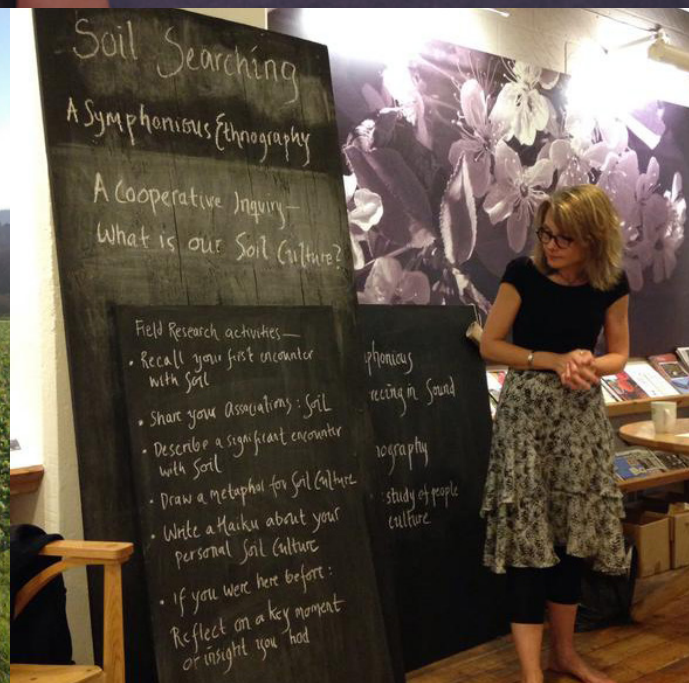 Soil Searching
A Symphonious Ethnography
A Cooperative Inquiry—
What is our Soil Culture?
Field Research activities—
• Recall your first encounter
with Soil
• Share your Associations: Soil
• Describe a significant encounter
with Soil
• Draw a metaphor for Soil Culture
• Write a Haiku about your
personal Soil Culture
• If you were here before:
Reflect on a key moment
or insight you had
phonious
reeing in Sound
nography
: study of people
culture